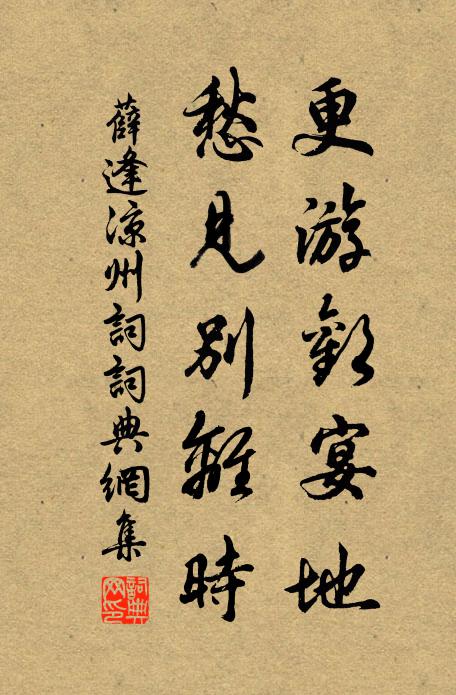 更游歡宴地
愁見別離時
薛逢涼州詞詞典網集
詞典網印